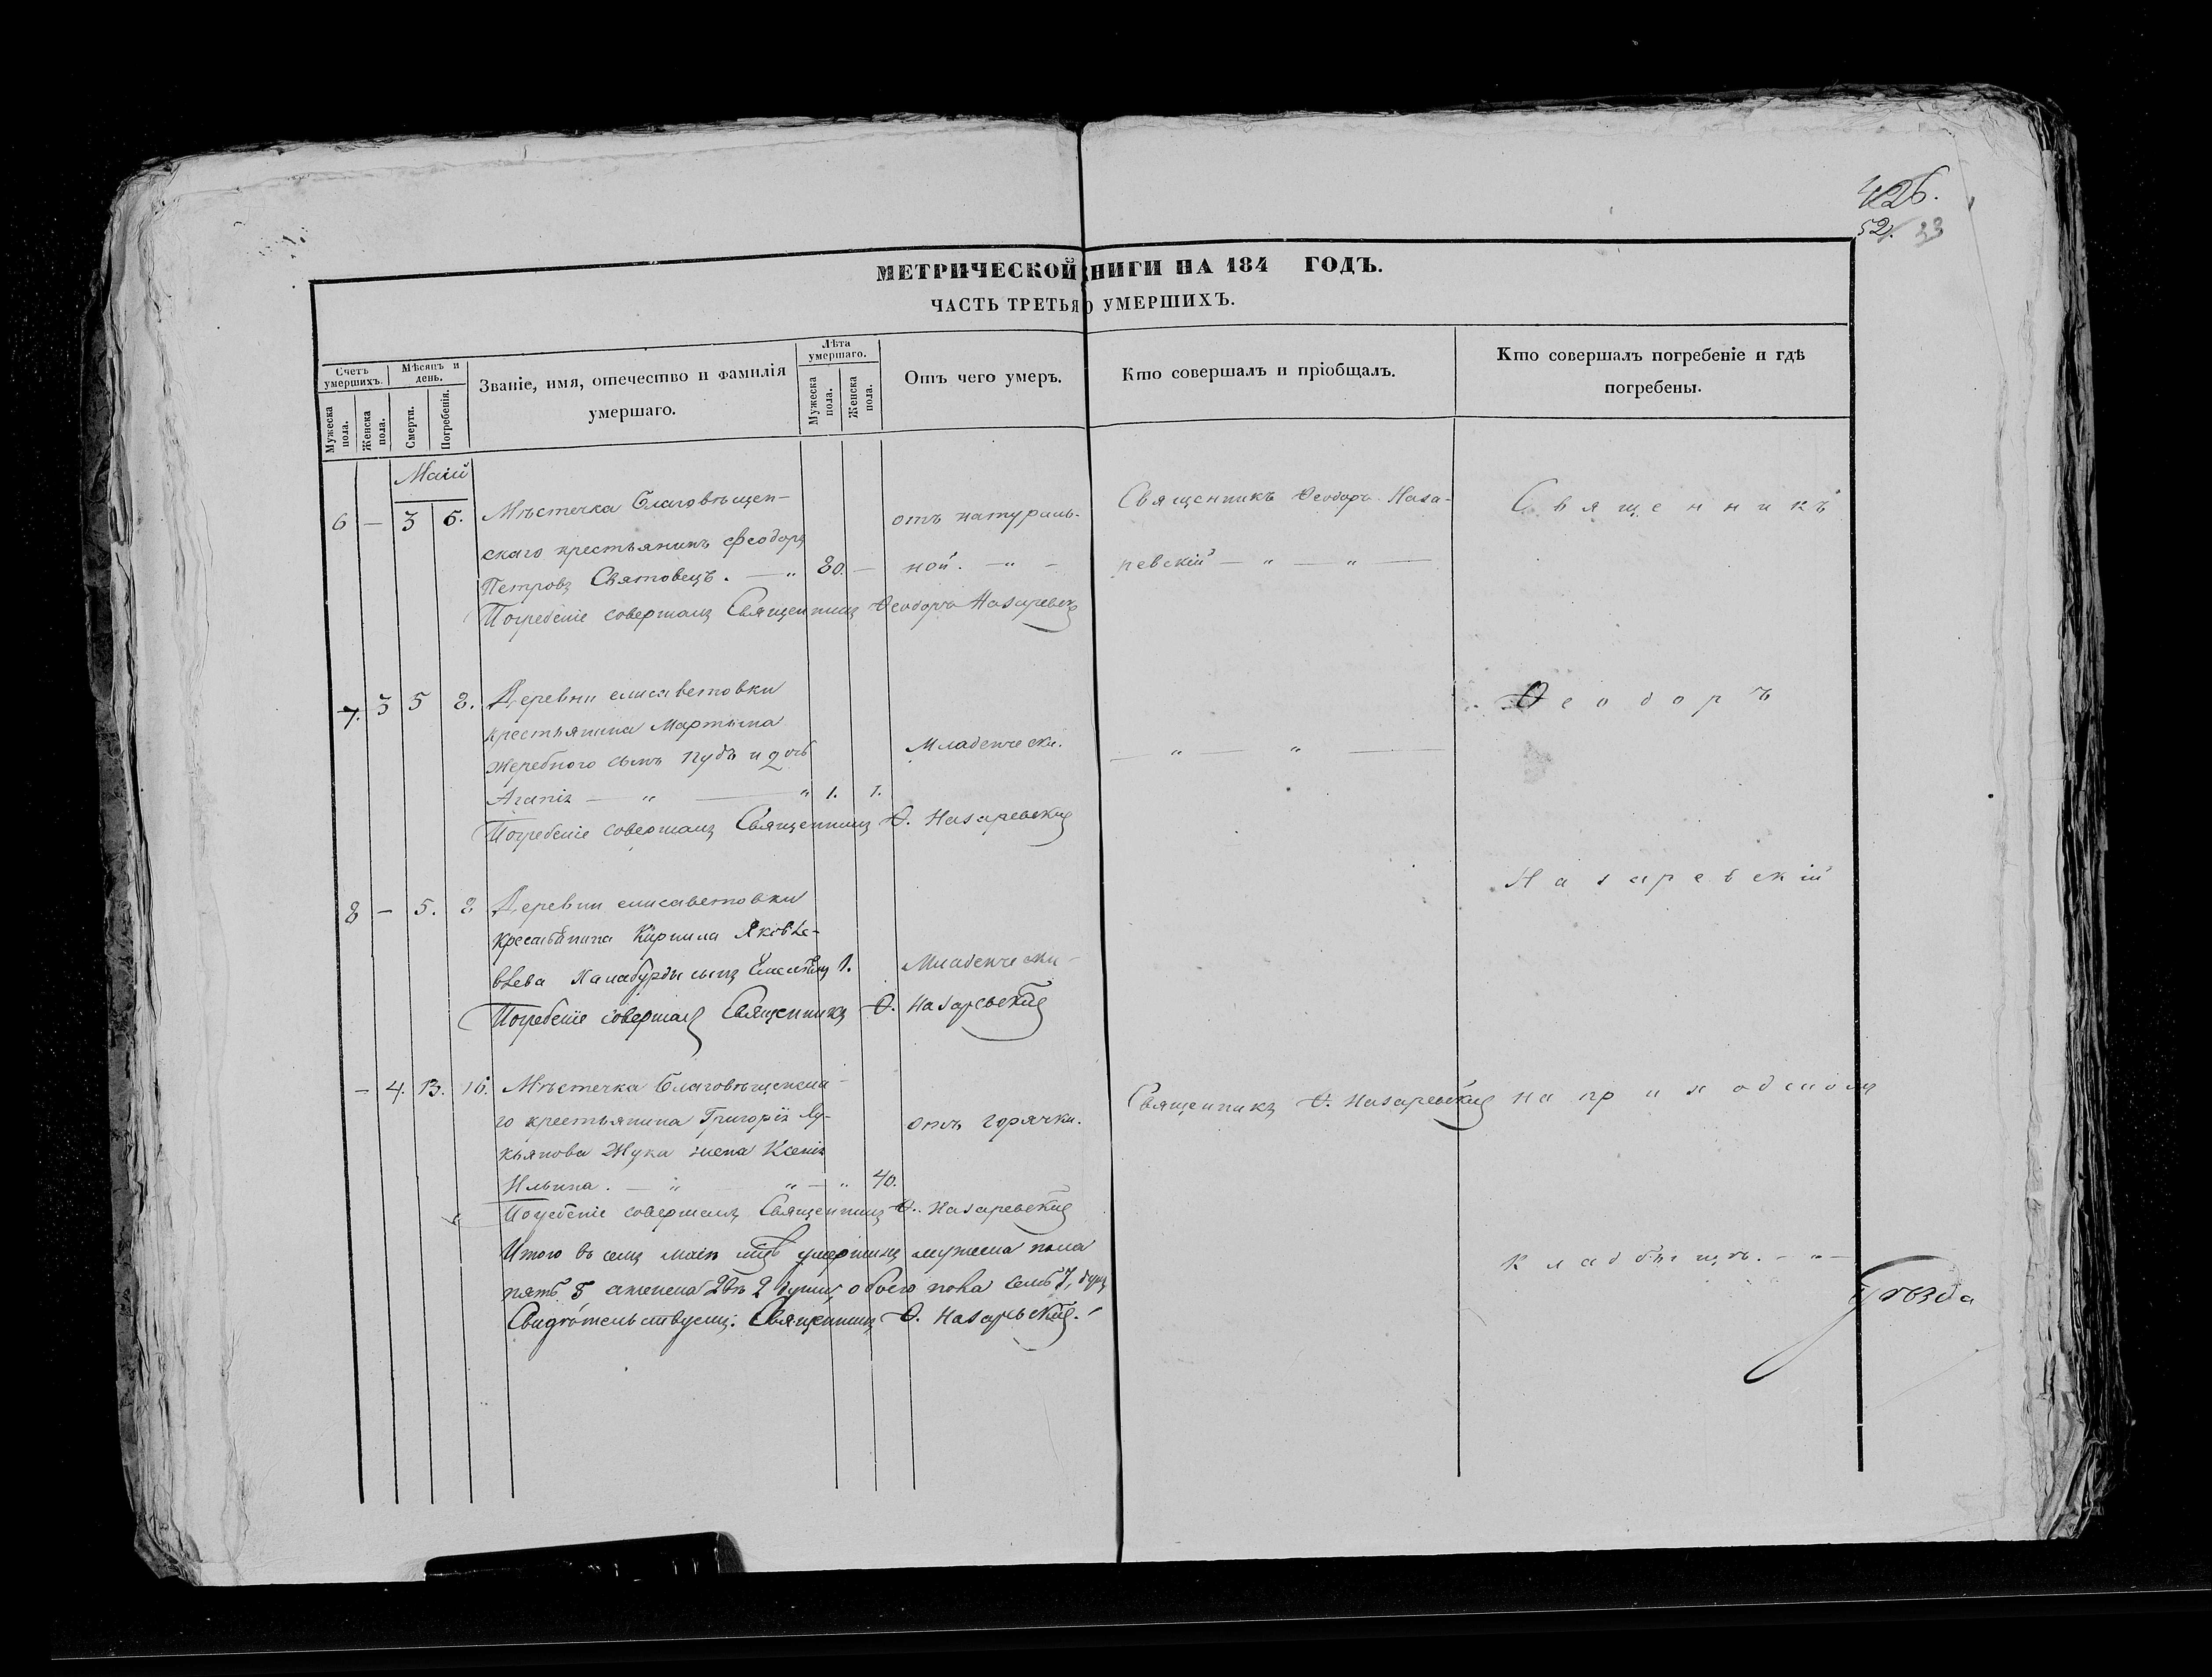 426.
52. 33
МЕТРИЧЕСКОЙ НИГИ НА 184 ГОДЪ.
ЧАСТЬ ТРЕТЬЯ О УМЕРШИХЪ.
Счетъ умершихъ.
Мѣсяцъ и день.
Званіе, имя, отечество и фамилія умершаго.
Лѣта умершаго.
Отъ чего умеръ.
Кто совершалъ и пріобщалъ.
Кто совершалъ погребеніе и гдѣ погребены.
Мужеска пола.
Женска пола.
Смерти.
Погребенія.
Мужеска пола.
Женска пола.
Маій
6 — 3 6. Мѣстечка Благовѣщен-
скаго крестьянинъ Феодоръ
Петровъ Святовецъ. — „ 80. —
отъ натураль-
ной. — „ —
Священникъ Ѳеодоръ Наза-
ревскій — „ — „ —
Погребеніе совершалъ Священникъ Ѳеодоръ Назаревск
7. 3 5 8. Деревни елисаветовки
крестьянина Мартына
жеребного сынъ Пудъ и дочь
Агапія — „ — „ 1. 1.
Младенческ.
— „ — „ —
Погребеніе совершалъ Священникъ Ѳ. Назаревскій
8 — 5. 8 Деревни елисаветовки
крестьянина Кирилла Яковле-
влева сынъ 1.
Младенчески-
Погребеніе совершалъ Священникъ Ѳ. Назаревскій
— 4. 13. 16. Мѣстечка Благовѣщенска-
го крестьянина Григорія Лу-
кьянова Жука жена Ксенія
Ильина. — „ „ — „ 40.
отъ горячки.
Священникъ Ѳ. Назаревскій
Погребеніе совершалъ Священникъ Ѳ. Назаревскій
Итого въ семъ маіи мцѣ умершихъ мужеска пола
пять 5 а женска двѣ 2 души, обоего пола семь 7, душъ
Свидѣтельствуемъ: Священникъ Ѳ. Назаревскій.
Священникъ
Ѳеодоръ
Назаревскій
на приходскомъ
кладбищѣ. — „ —
Гнѣзда